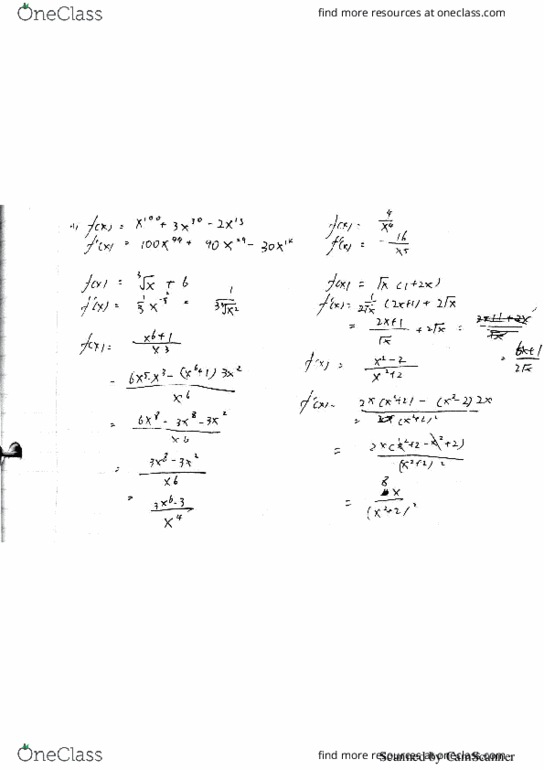 OneClass
find more resources at oneclass.com
f(x) = x¹⁰⁰ + 3x³⁰ - 2x¹⁵
f'(x) = 100x⁹⁹ + 90x²⁹ - 30x¹⁴
f(x) = ∛x + 6
f(x) = (x⁶+1)/x³
= (6x⁵·x³ - (x⁶+1)3x²)/x⁶
= (6x⁸ - 3x⁸ - 3x²)/x⁶
= (3x⁸ - 3x²)/x⁶
= (3x⁶-3)/x⁴
f(x) = 4/x⁴
f'(x) = -16/x⁵
f(x) = √x (1+2x)
f'(x) = 1/(2√x) (2x+1) + 2√x
= (2x+1)/√x + 2√x =
= (6x+1)/(2√x)
f'(x) = (x²-2)/(x²+2)
f'(x) = (2x(x²+2) - (x²-2)2x)/(x²+2)²
= 2x(x²+2-x²+2)/(x²+2)²
= 8x/(x²+2)²
OneClass
find more resources at oneclass.com
Scanned by CamScanner